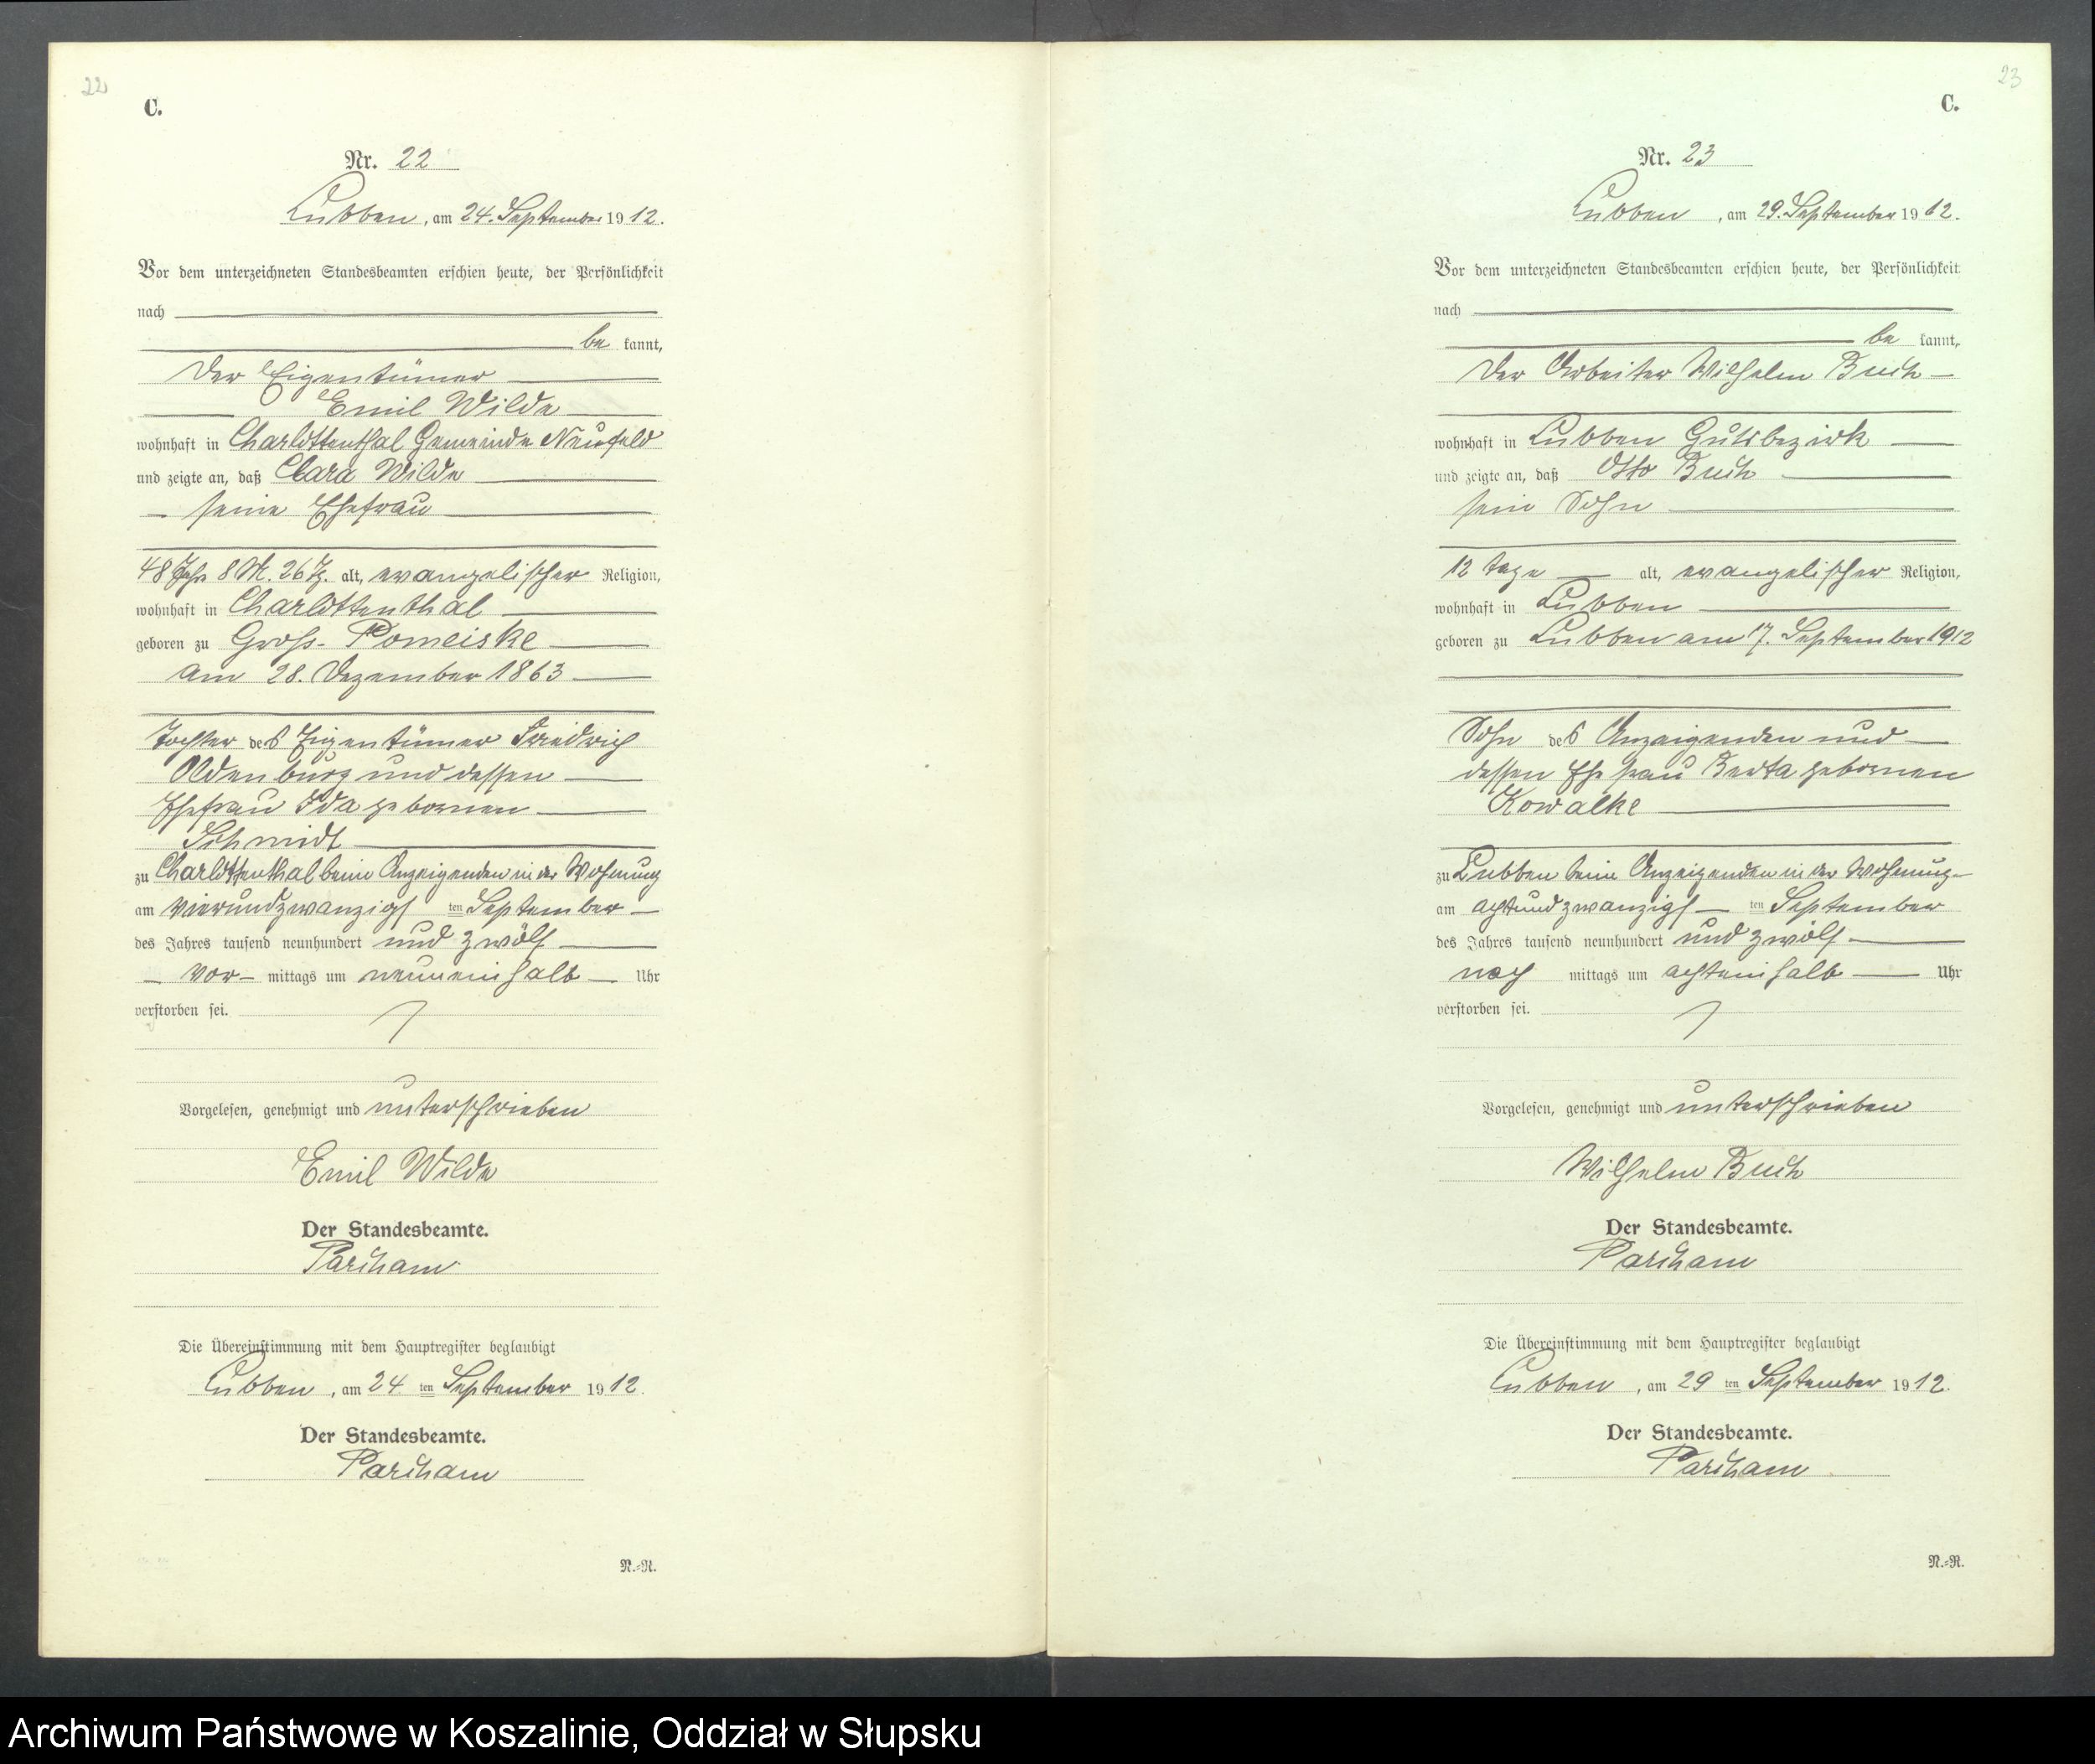 22
C.
Nr. 22
Lubben, am 24. September 1912.
Vor dem unterzeichneten Standesbeamten erschien heute, der Persönlichkeit
nach
be kannt,
der Eigentümer
Emil Wilde
wohnhaft in Charlottenthal Gemeinde Neufeld
und zeigte an, daß Clara Wilde
seine Ehefrau
48 Jahr 8 M. 26 Tg. alt, evangelischer Religion,
wohnhaft in Charlottenthal
geboren zu Gross-Pomeiske
am 28. Dezember 1863
Tochter des Eigentümer Friedrich
Oldenburg und dessen
Ehefrau Ida gebornen
Schmidt
zu Charlottenthal beim Anzeigenden in der Wohnung
am vierundzwanzigsten September
des Jahres tausend neunhundert und zwölf
vor mittags um neuneinhalb Uhr
verstorben sei.
Vorgelesen, genehmigt und unterschrieben
Emil Wilde
Der Standesbeamte.
Parcham
Die Übereinstimmung mit dem Hauptregister beglaubigt
Lubben, am 24 ten September 1912.
Der Standesbeamte.
Parcham
N.=R.
23
C.
Nr. 23
Lubben, am 29. September 1912.
Vor dem unterzeichneten Standesbeamten erschien heute, der Persönlichkeit
nach
be kannt,
der Arbeiter Wilhelm Buch
wohnhaft in Lubben Gutsbezirk
und zeigte an, daß Otto Buch
sein Sohn
12 tage alt, evangelischer Religion,
wohnhaft in Lubben
geboren zu Lubben am 17. September 1912
Sohn des Anzeigenden und
dessen Ehefrau Berta gebornen
Kowalke
zu Lubben beim Anzeigenden in der Wohnung
am achtundzwanzigsten September
des Jahres tausend neunhundert und zwölf
nach mittags um achteinhalb Uhr
verstorben sei.
Vorgelesen, genehmigt und unterschrieben
Wilhelm Buch
Der Standesbeamte.
Parcham
Die Übereinstimmung mit dem Hauptregister beglaubigt
Lubben, am 29 ten September 1912.
Der Standesbeamte.
Parcham
N.=R.
Archiwum Państwowe w Koszalinie, Oddział w Słupsku